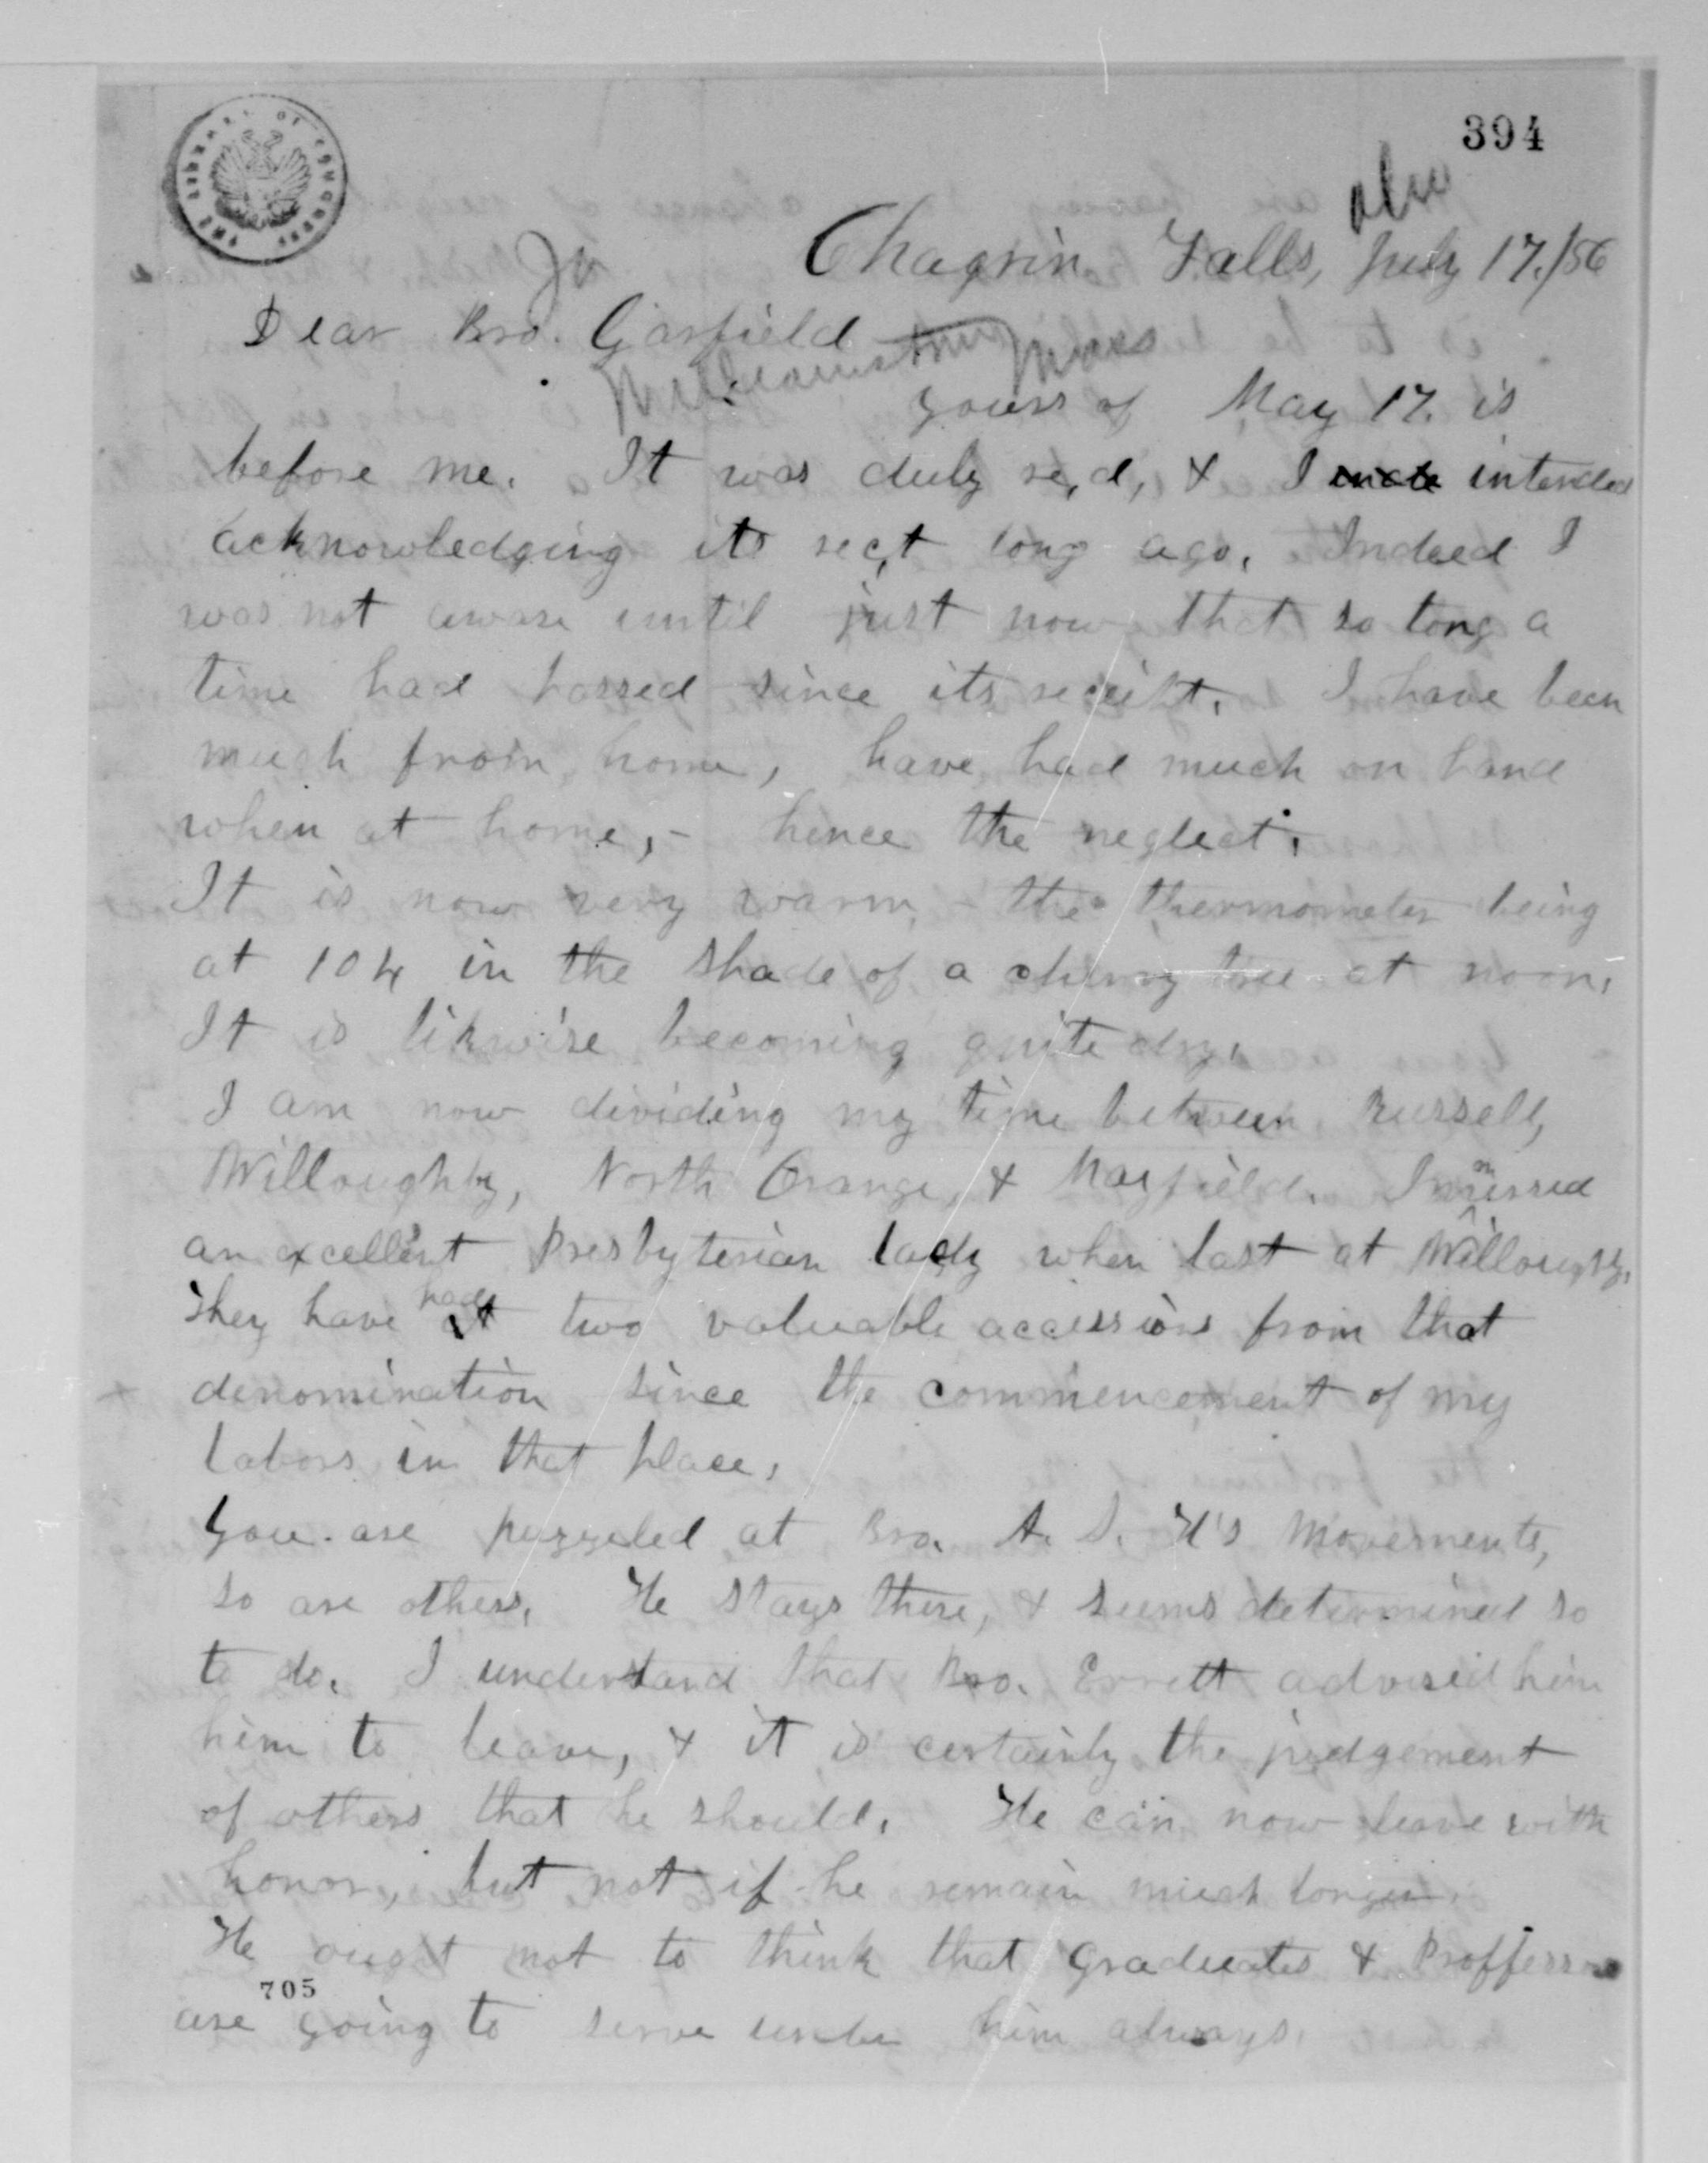 394
THE LIBRARY OF CONGRESS
Ohio
Chagrin Falls, July 17./56
Jr
Dear Bro. Garfield
Williamstown Mass
yours of May 17. is
before me. It was duly re,d, & I intended
acknowledging its rec,t long ago. Indeed I
was not aware until just now that so long a
time had passed since its receipt. I have been
much from home, have had much on hand
when at home, - hence the neglect.
It is now very warm, - the thermometer being
at 104 in the shade of a cherry tree at noon.
It is likwise becoming quite dry.
I am now dividing my time between Russell,
Willoughby, North Orange, & Mayfield. I immersed
an excellent Presbyterian lady when last at Willoughby.
They have had two valuable accessions from that
denomination since the commencement of my
labors in that place.
You are puzzeled at Bro. A. S. H's movements,
so are others. He stays there, & seems determined so
to do. I understand that Bro. Errett advised him
him to leave, & it is certainly the judgement
of others that he should. He can now leave with
honor, but not if he remain much longer.
He ought not to think that graduates & Proffessors
705
are going to serve under him always.